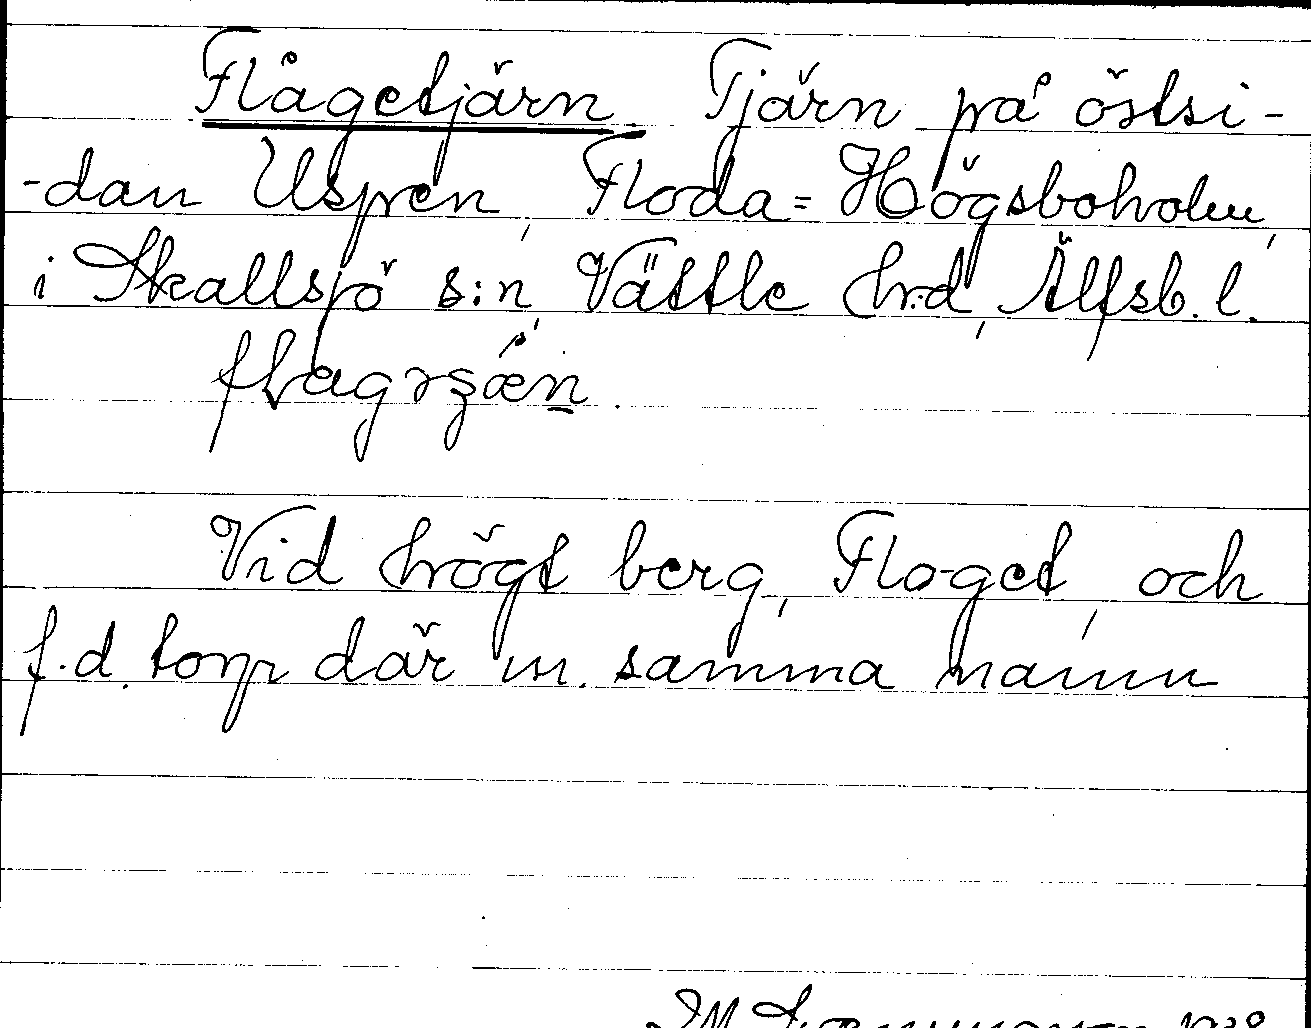 Flågetjärn. Tjärn på östsi-
-dan Uspen, Floda= Högsboholm,
i Skallsjö s:n, Vättle hrd, Älfsb. l.
Vid högt berg, Floget, och
f.d. torp där m. samma namn